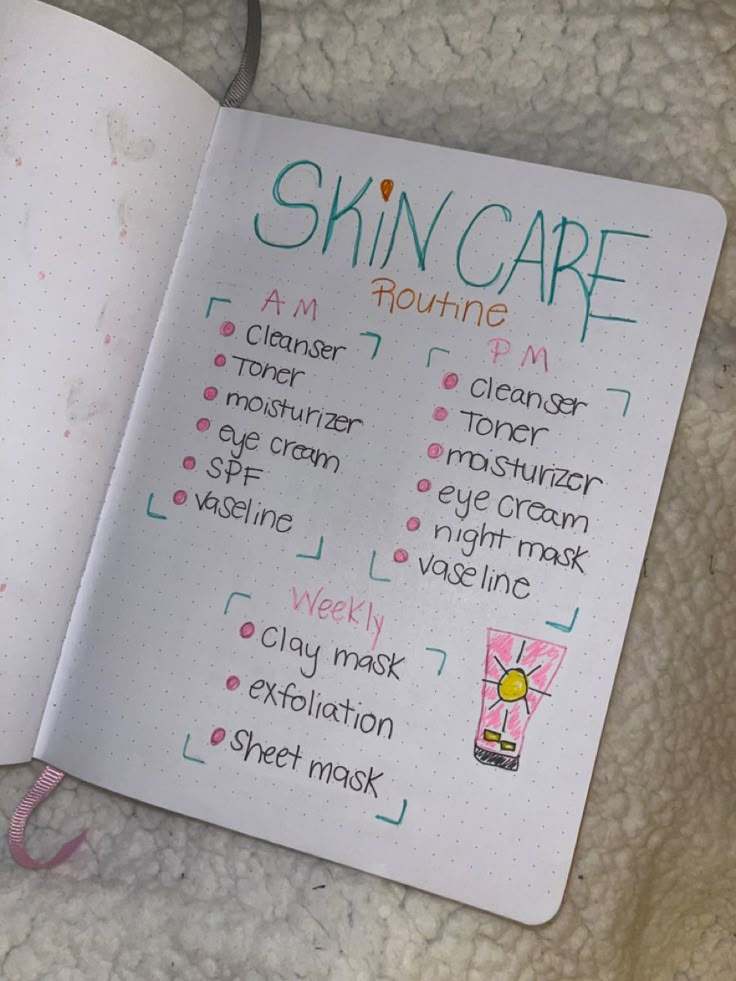 SKiN CARE
Routine
AM
Cleanser
Toner
moisturizer
eye cream
SPF
vaseline
PM
Cleanser
Toner
moisturizer
eye cream
night mask
vaseline
Weekly
Clay mask
exfoliation
Sheet mask